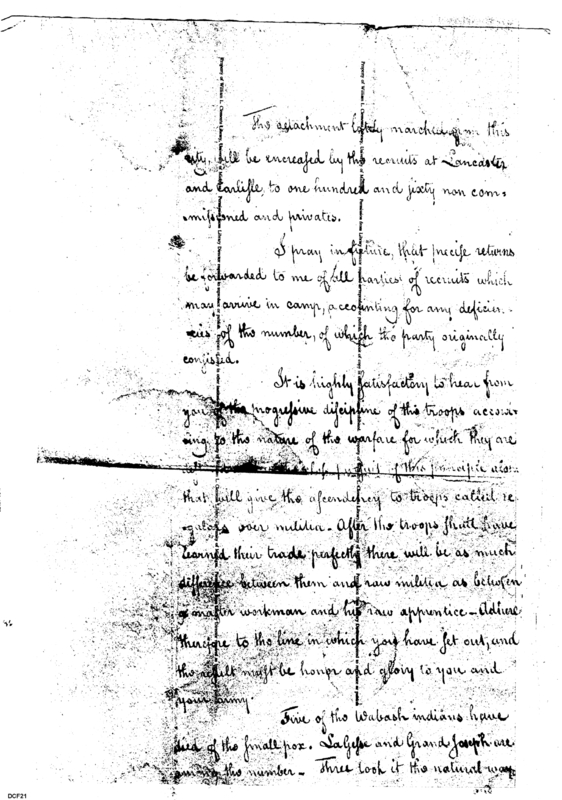 The detachment lately marched from this
city, will be encreased by the recruits at Lancaster
and Carlisle, to one hundred and sixty non com-
missioned and privates.
I pray in future, that precise returns
be forwarded to me of all parties of recruits which
may arrive in camp, accounting for any deficien-
cies of the number, of which the party originally
consisted.
It is highly satisfactory to hear from
you of the progressive discipline of the troops accord-
ing to the nature of the warfare for which they are
pursuit of this principle alone
that will give the ascendency to troops called re-
gulars over militia - After the troops shall have
learned their trade perfectly there will be as much
difference between them and raw militia as between
a master workman and his raw apprentice - Adhere
therefore to the line in which you have set out, and
the result must be honor and glory to you and
your army.
Five of the Wabash indians have
died of the small pox. LaGesse and Grand Joseph are
among the number - Three took it the natural way
DCF21